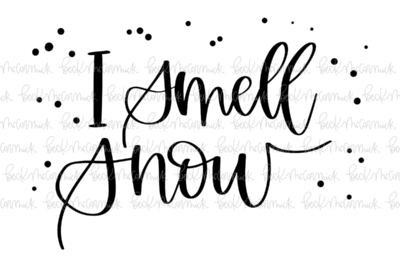 I smell
snow